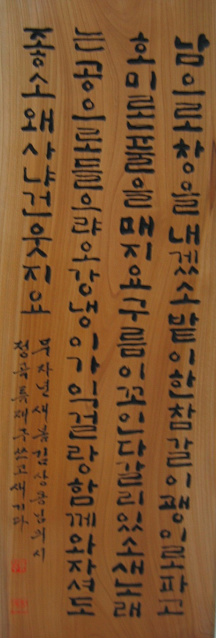 남으로창을내겠소밭이한참갈이괭이로파고
호미론풀을매지요구름이꼬인다갈리있소새노래
는공으로들으랴오강냉이가익걸랑함께와자셔도
좋소왜사냐건웃지요
무자년새봄김상용님의시